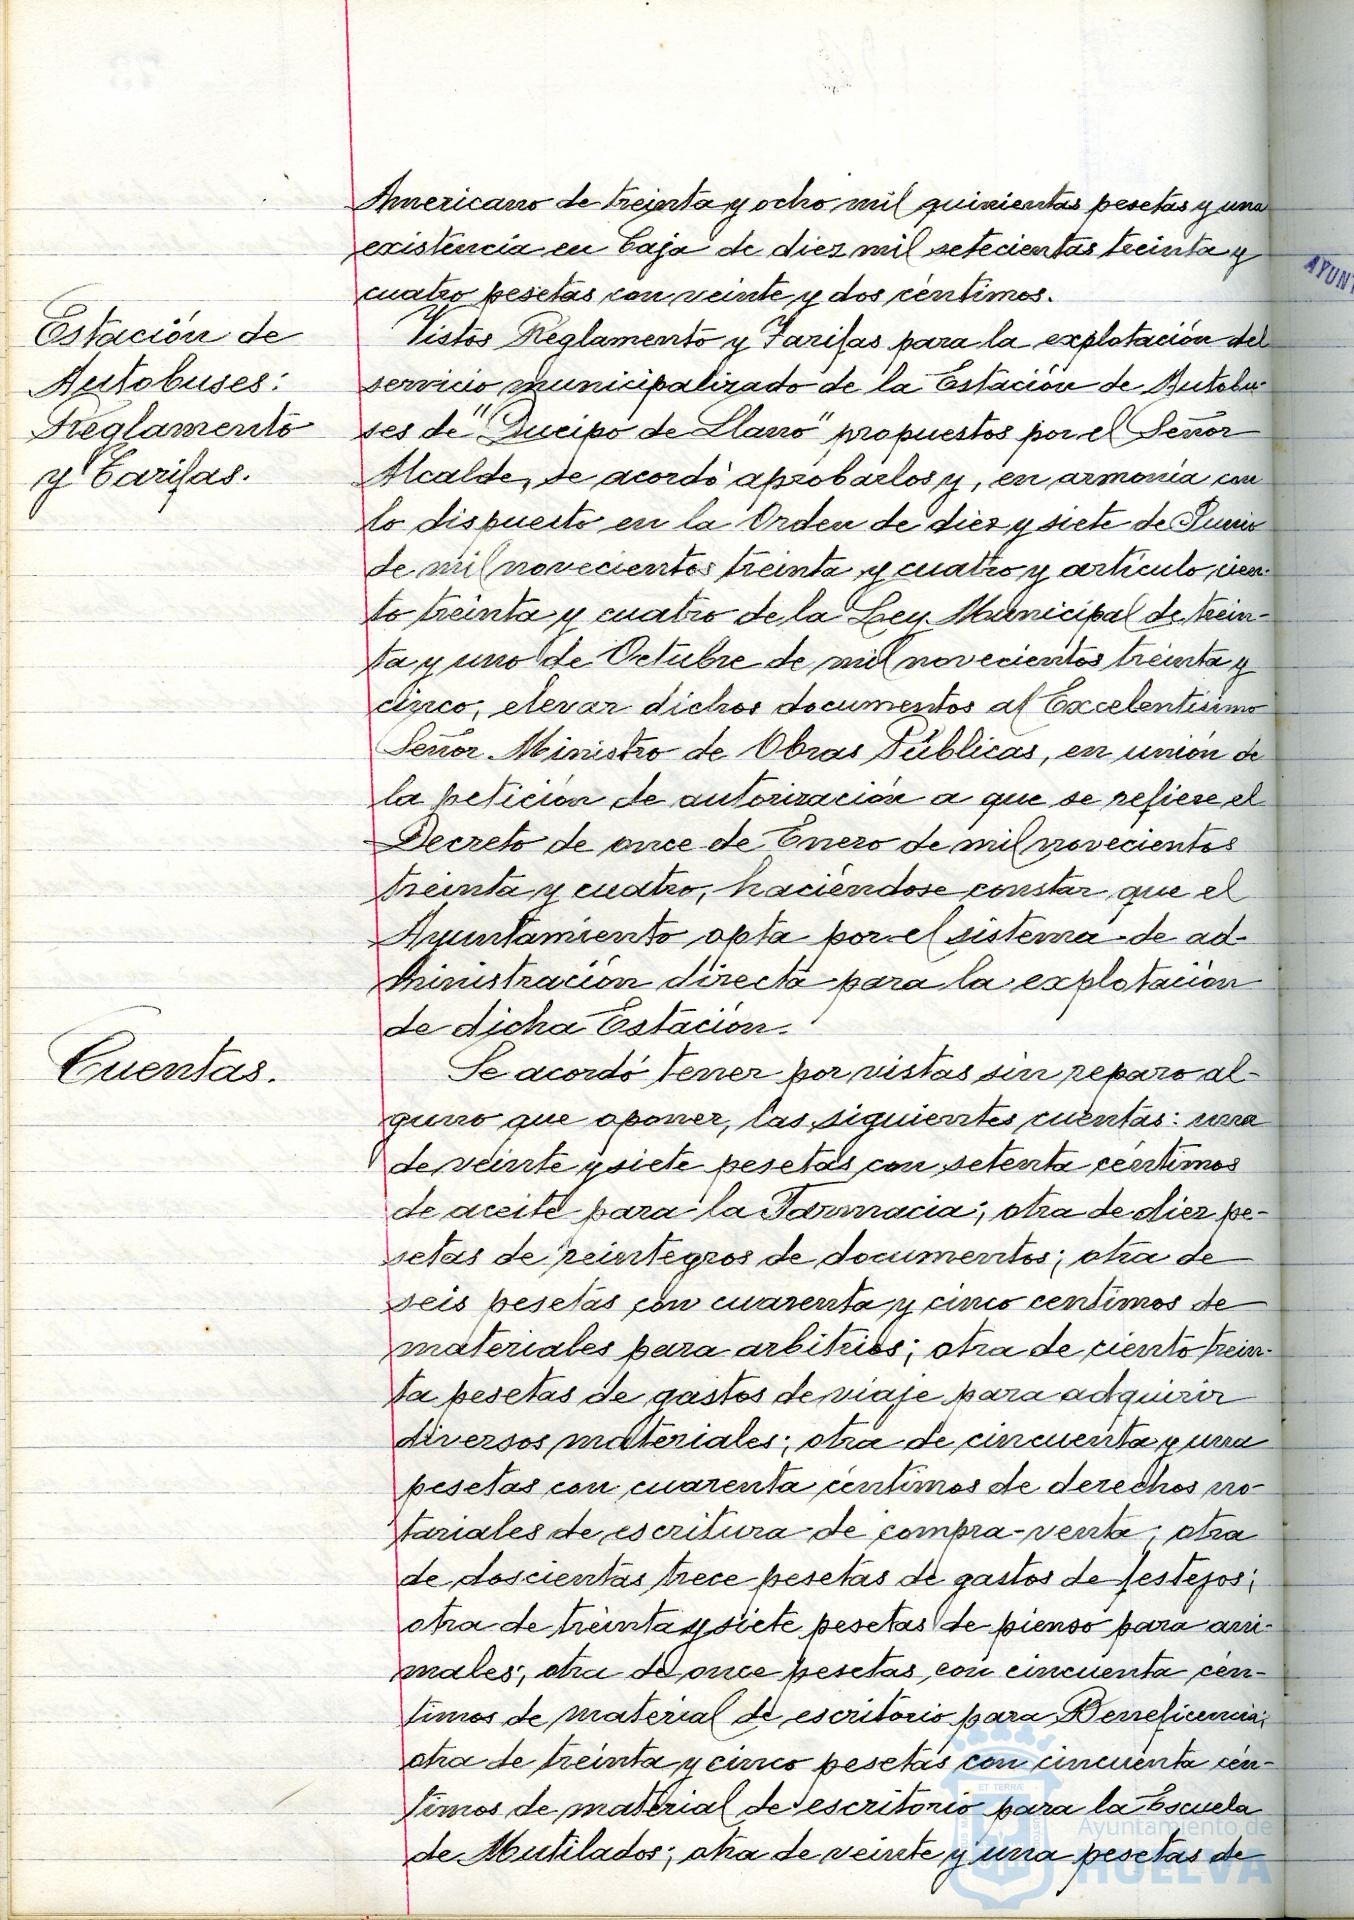 Americano de treinta y ocho mil quinientas pesetas y una
existencia en Caja de diez mil setecientas treinta y
cuatro pesetas con veinte y dos céntimos.
Estación de
Autobuses:
Reglamento
y Tarifas.
Vistos Reglamento y Tarifas para la explotación del
servicio municipalizado de la Estación de Autobu-
ses de "Queipo de Llano" propuestos por el Señor
Alcalde, se acordó aprobarlos y, en armonía con
lo dispuesto en la Orden de diez y siete de Junio
de mil novecientos treinta y cuatro y artículo cien-
to treinta y cuatro de la Ley Municipal de trein-
ta y uno de Octubre de mil novecientos treinta y
cinco, elevar dichos documentos al Excelentísimo
Señor Ministro de Obras Públicas, en unión de
la petición de autorización a que se refiere el
Decreto de once de Enero de mil novecientos
treinta y cuatro, haciéndose constar que el
Ayuntamiento opta por el sistema de ad-
ministración directa para la explotación
de dicha Estación.
Cuentas.
Se acordó tener por vistas sin reparo al-
guno que oponer, las siguientes cuentas: una
de veinte y siete pesetas con setenta céntimos
de aceite para la Farmacia; otra de diez pe-
setas de reintegros de documentos; otra de
seis pesetas con cuarenta y cinco centimos de
materiales para arbitrios; otra de ciento trein-
ta pesetas de gastos de viaje para adquirir
diversos materiales; otra de cincuenta y una
pesetas con cuarenta céntimos de derechos no-
tariales de escritura de compra-venta; otra
de doscientas trece pesetas de gastos de festejos;
otra de treinta y siete pesetas de pienso para ani-
males; otra de once pesetas con cincuenta cén-
timos de material de escritorio para Beneficencia;
otra de treinta y cinco pesetas con cincuenta cén-
timos de material de escritorio para la Escuela
de Mutilados; otra de veinte y una pesetas de
AYUNT
ET TERRÆ
Ayuntamiento de
HUELVA